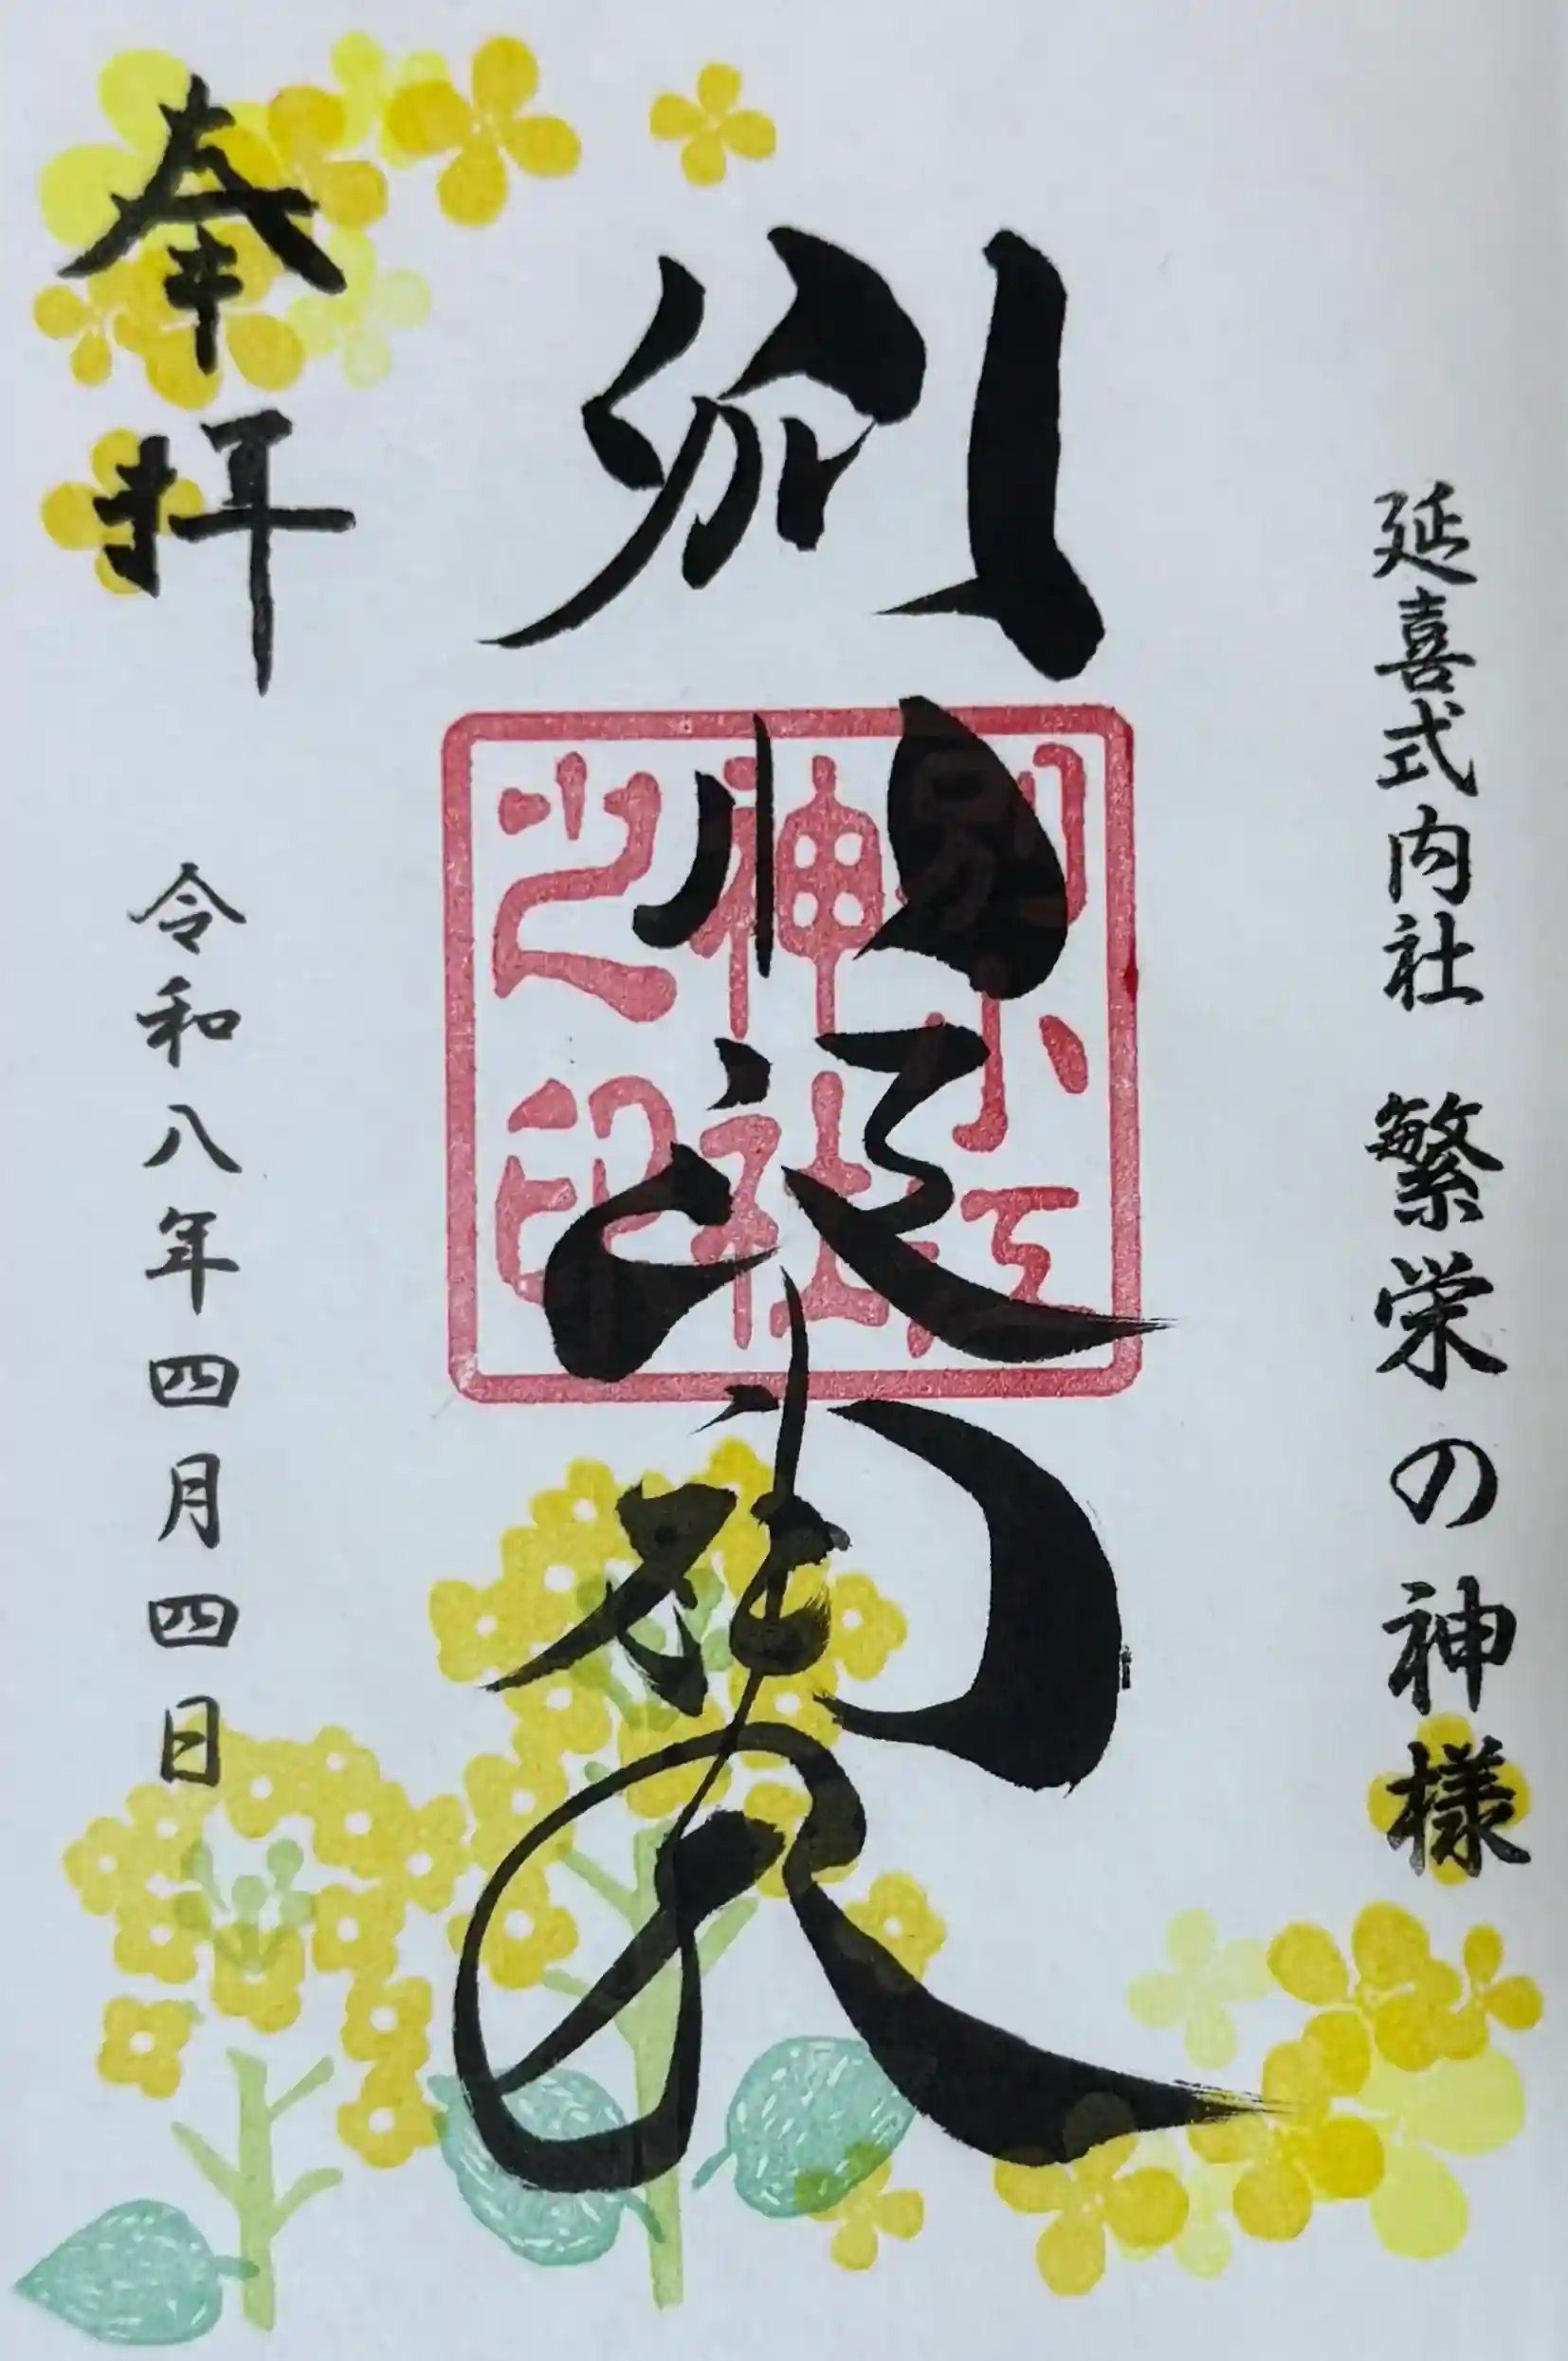 延喜式内社 繁栄の神様
別小江神社
別小江
神社
之印
奉拝
令和八年四月四日